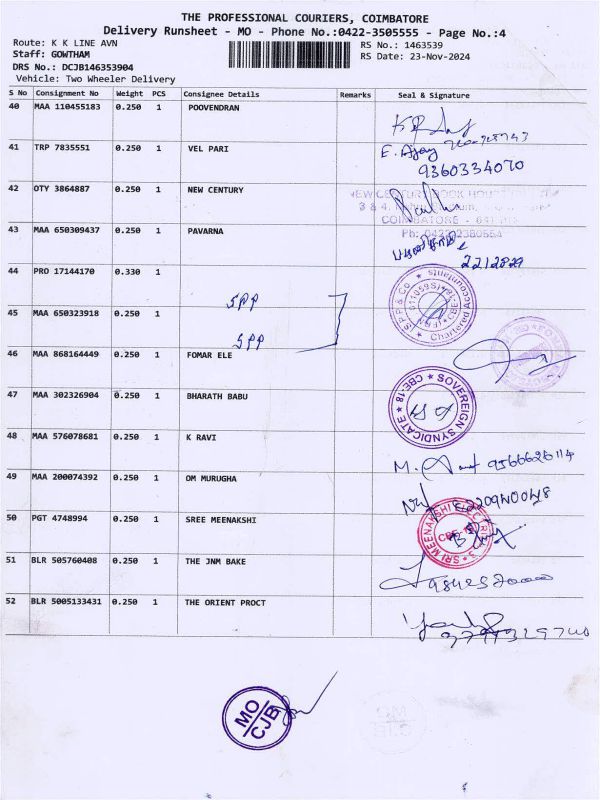 THE PROFESSIONAL COURIERS, COIMBATORE
Delivery Runsheet - MO - Phone No.:0422-3505555 - Page No.:4
Route: K K LINE AVN
RS No.: 1463539
Staff: GOWTHAM
RS Date: 23-Nov-2024
DRS No.: DCJB146353904
Vehicle: Two Wheeler Delivery
S No Consignment No Weight PCS Consignee Details Remarks Seal & Signature
40 MAA 110455183 0.250 1 POOVENDRAN
41 TRP 7835551 0.250 1 VEL PARI E. Ajay
9360334070
42 OTY 3864887 0.250 1 NEW CENTURY
NEW CENTURY BOOK HOUSE
COIMBATORE - 641
Ph: 0422 2380554
43 MAA 650309437 0.250 1 PAVARNA
2212829
44 PRO 17144170 0.330 1 SPP
SPP & Co. ★ Chartered Accountants ★ FRN
45 MAA 650323918 1 SPP
46 MAA 868164449 0.250 1 FOMAR ELE
47 MAA 302326904 0.250 1 BHARATH BABU
★ SOVEREIGN SYNDICATE ★ CBE-18
48 MAA 576078681 0.250 1 K RAVI
9566626114
49 MAA 200074392 0.250 1 OM MURUGHA
50 PGT 4748994 0.250 1 SREE MEENAKSHI
SRI MEENAKSHI ELECTRI
CBE-
51 BLR 505760408 0.250 1 THE JNM BAKE
52 BLR 5005133431 0.250 1 THE ORIENT PROCT
MO
CJB
MO
CJB